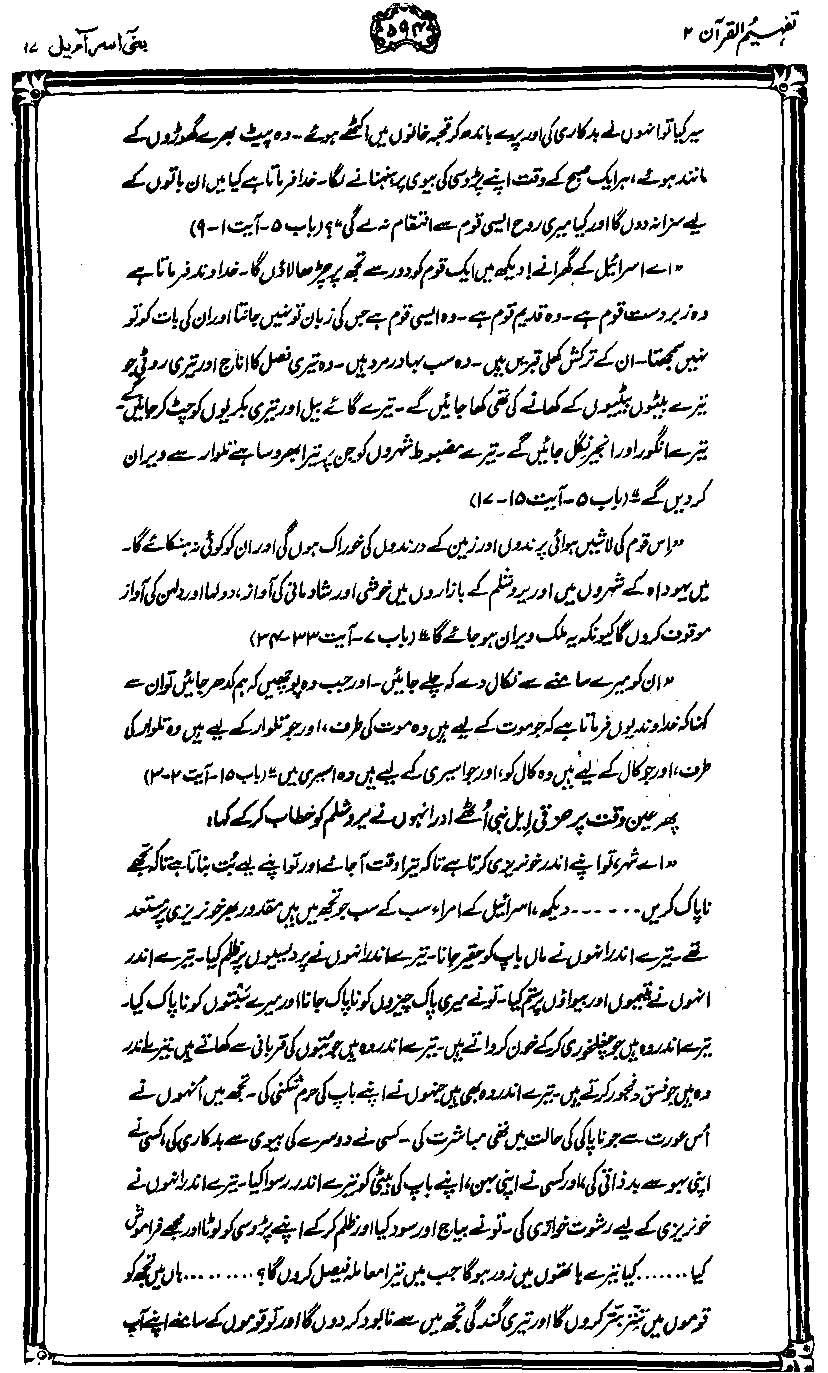 تفہیم القرآن ۲
۵۹۴
بنی اسرآءیل ۱۷
سیر کیا تو انہوں نے بدکاری کی اور پرے باندھ کر قحبہ خانوں میں اکٹھے ہوئے۔ وہ پیٹ بھرے گھوڑوں کے
مانند ہوئے، ہر ایک صبح کے وقت اپنے پڑوسی کی بیوی پر ہنہنانے لگا۔ خدا فرماتا ہے کیا میں ان باتوں کے
لیے سزا نہ دوں گا اور کیا میری روح ایسی قوم سے انتقام نہ لے گی“؟ (باب ۵۔ آیت ۱-۹)
”اے اسرائیل کے گھرانے! دیکھ میں ایک قوم کو دور سے تجھ پر چڑھا لاؤں گا۔ خداوند فرماتا ہے
وہ زبردست قوم ہے۔ وہ قدیم قوم ہے۔ وہ ایسی قوم ہے جس کی زبان تو نہیں جانتا اور ان کی بات کو تو
نہیں سمجھتا۔ ان کے ترکش کھلی قبریں ہیں۔ وہ سب بہادر مرد ہیں۔ وہ تیری فصل کا اناج اور تیری روٹی جو
تیرے بیٹوں بیٹیوں کے کھانے کی تھی کھا جائیں گے۔ تیرے گائے بیل اور تیری بکریوں کو چٹ کر جائیں گے۔
تیرے انگور اور انجیر نگل جائیں گے۔ تیرے مضبوط شہروں کو جن پر تیرا بھروسا ہے تلوار سے ویران
کر دیں گے“ (باب ۵۔ آیت ۱۵-۱۷)
”اِس قوم کی لاشیں ہوائی پرندوں اور زمین کے درندوں کی خوراک ہوں گی اور ان کو کوئی نہ ہنکائے گا۔
میں یہوداہ کے شہروں میں اور یروشلم کے بازاروں میں خوشی اور شادمانی کی آواز، دولہا اور دلہن کی آواز
موقوف کروں گا کیونکہ یہ ملک ویران ہو جائے گا“ (باب ۷۔ آیت ۳۳-۳۴)
”ان کو میرے سامنے سے نکال دے کہ چلے جائیں۔ اور جب وہ پوچھیں کہ ہم کدھر جائیں تو ان سے
کہنا کہ خداوند یوں فرماتا ہے کہ جو موت کے لیے ہیں وہ موت کی طرف، اور جو تلوار کے لیے ہیں وہ تلوار کی
طرف، اور جو کال کے لیے ہیں وہ کال کو، اور جو اسیری کے لیے ہیں وہ اسیری میں“ (باب ۱۵۔ آیت ۲-۳)
پھر عین وقت پر حزقی ایل نبی اُٹھے اور انہوں نے یروشلم کو خطاب کر کے کہا:
”اے شہر، تو اپنے اندر خونریزی کرتا ہے تاکہ تیرا وقت آ جائے اور تو اپنے لیے بُت بناتا ہے تاکہ تجھے
ناپاک کریں ...... دیکھ، اسرائیل کے امراء سب کے سب جو تجھ میں ہیں مقدور بھر خونریزی پر مستعد
تھے۔ تیرے اندر انہوں نے ماں باپ کو حقیر جانا۔ تیرے اندر انہوں نے پردیسیوں پر ظلم کیا۔ تیرے اندر
انہوں نے یتیموں اور بیواؤں پر ستم کیا۔ تو نے میری پاک چیزوں کو ناپاک جانا اور میرے سبتوں کو ناپاک کیا۔
تیرے اندر وہ ہیں جو چغلخوری کر کے خون کرواتے ہیں۔ تیرے اندر وہ ہیں جو بُتوں کی قربانی سے کھاتے ہیں تیرے اندر
وہ ہیں جو فسق و فجور کرتے ہیں۔ تیرے اندر وہ بھی ہیں جنہوں نے اپنے باپ کی حرم شکنی کی۔ تجھ میں اُنہوں نے
اُس عورت سے جو ناپاکی کی حالت میں تھی مباشرت کی۔ کسی نے دوسرے کی بیوی سے بدکاری کی، کسی نے
اپنی بہو سے بدذاتی کی، اور کسی نے اپنی بہن، اپنے باپ کی بیٹی کو تیرے اندر رسوا کیا۔ تیرے اندر انہوں نے
خونریزی کے لیے رشوت خواری کی۔ تو نے بیاج اور سود لیا اور ظلم کر کے اپنے پڑوسی کو لوٹا اور مجھے فراموش
کیا ....... کیا تیرے ہاتھوں میں زور ہوگا جب میں تیرا معاملہ فیصل کروں گا؟ .......... ہاں میں تجھ کو
قوموں میں تتر بتر کروں گا اور تیری گندگی تجھ میں سے نابود کر دوں گا اور تو قوموں کے سامنے اپنے آپ